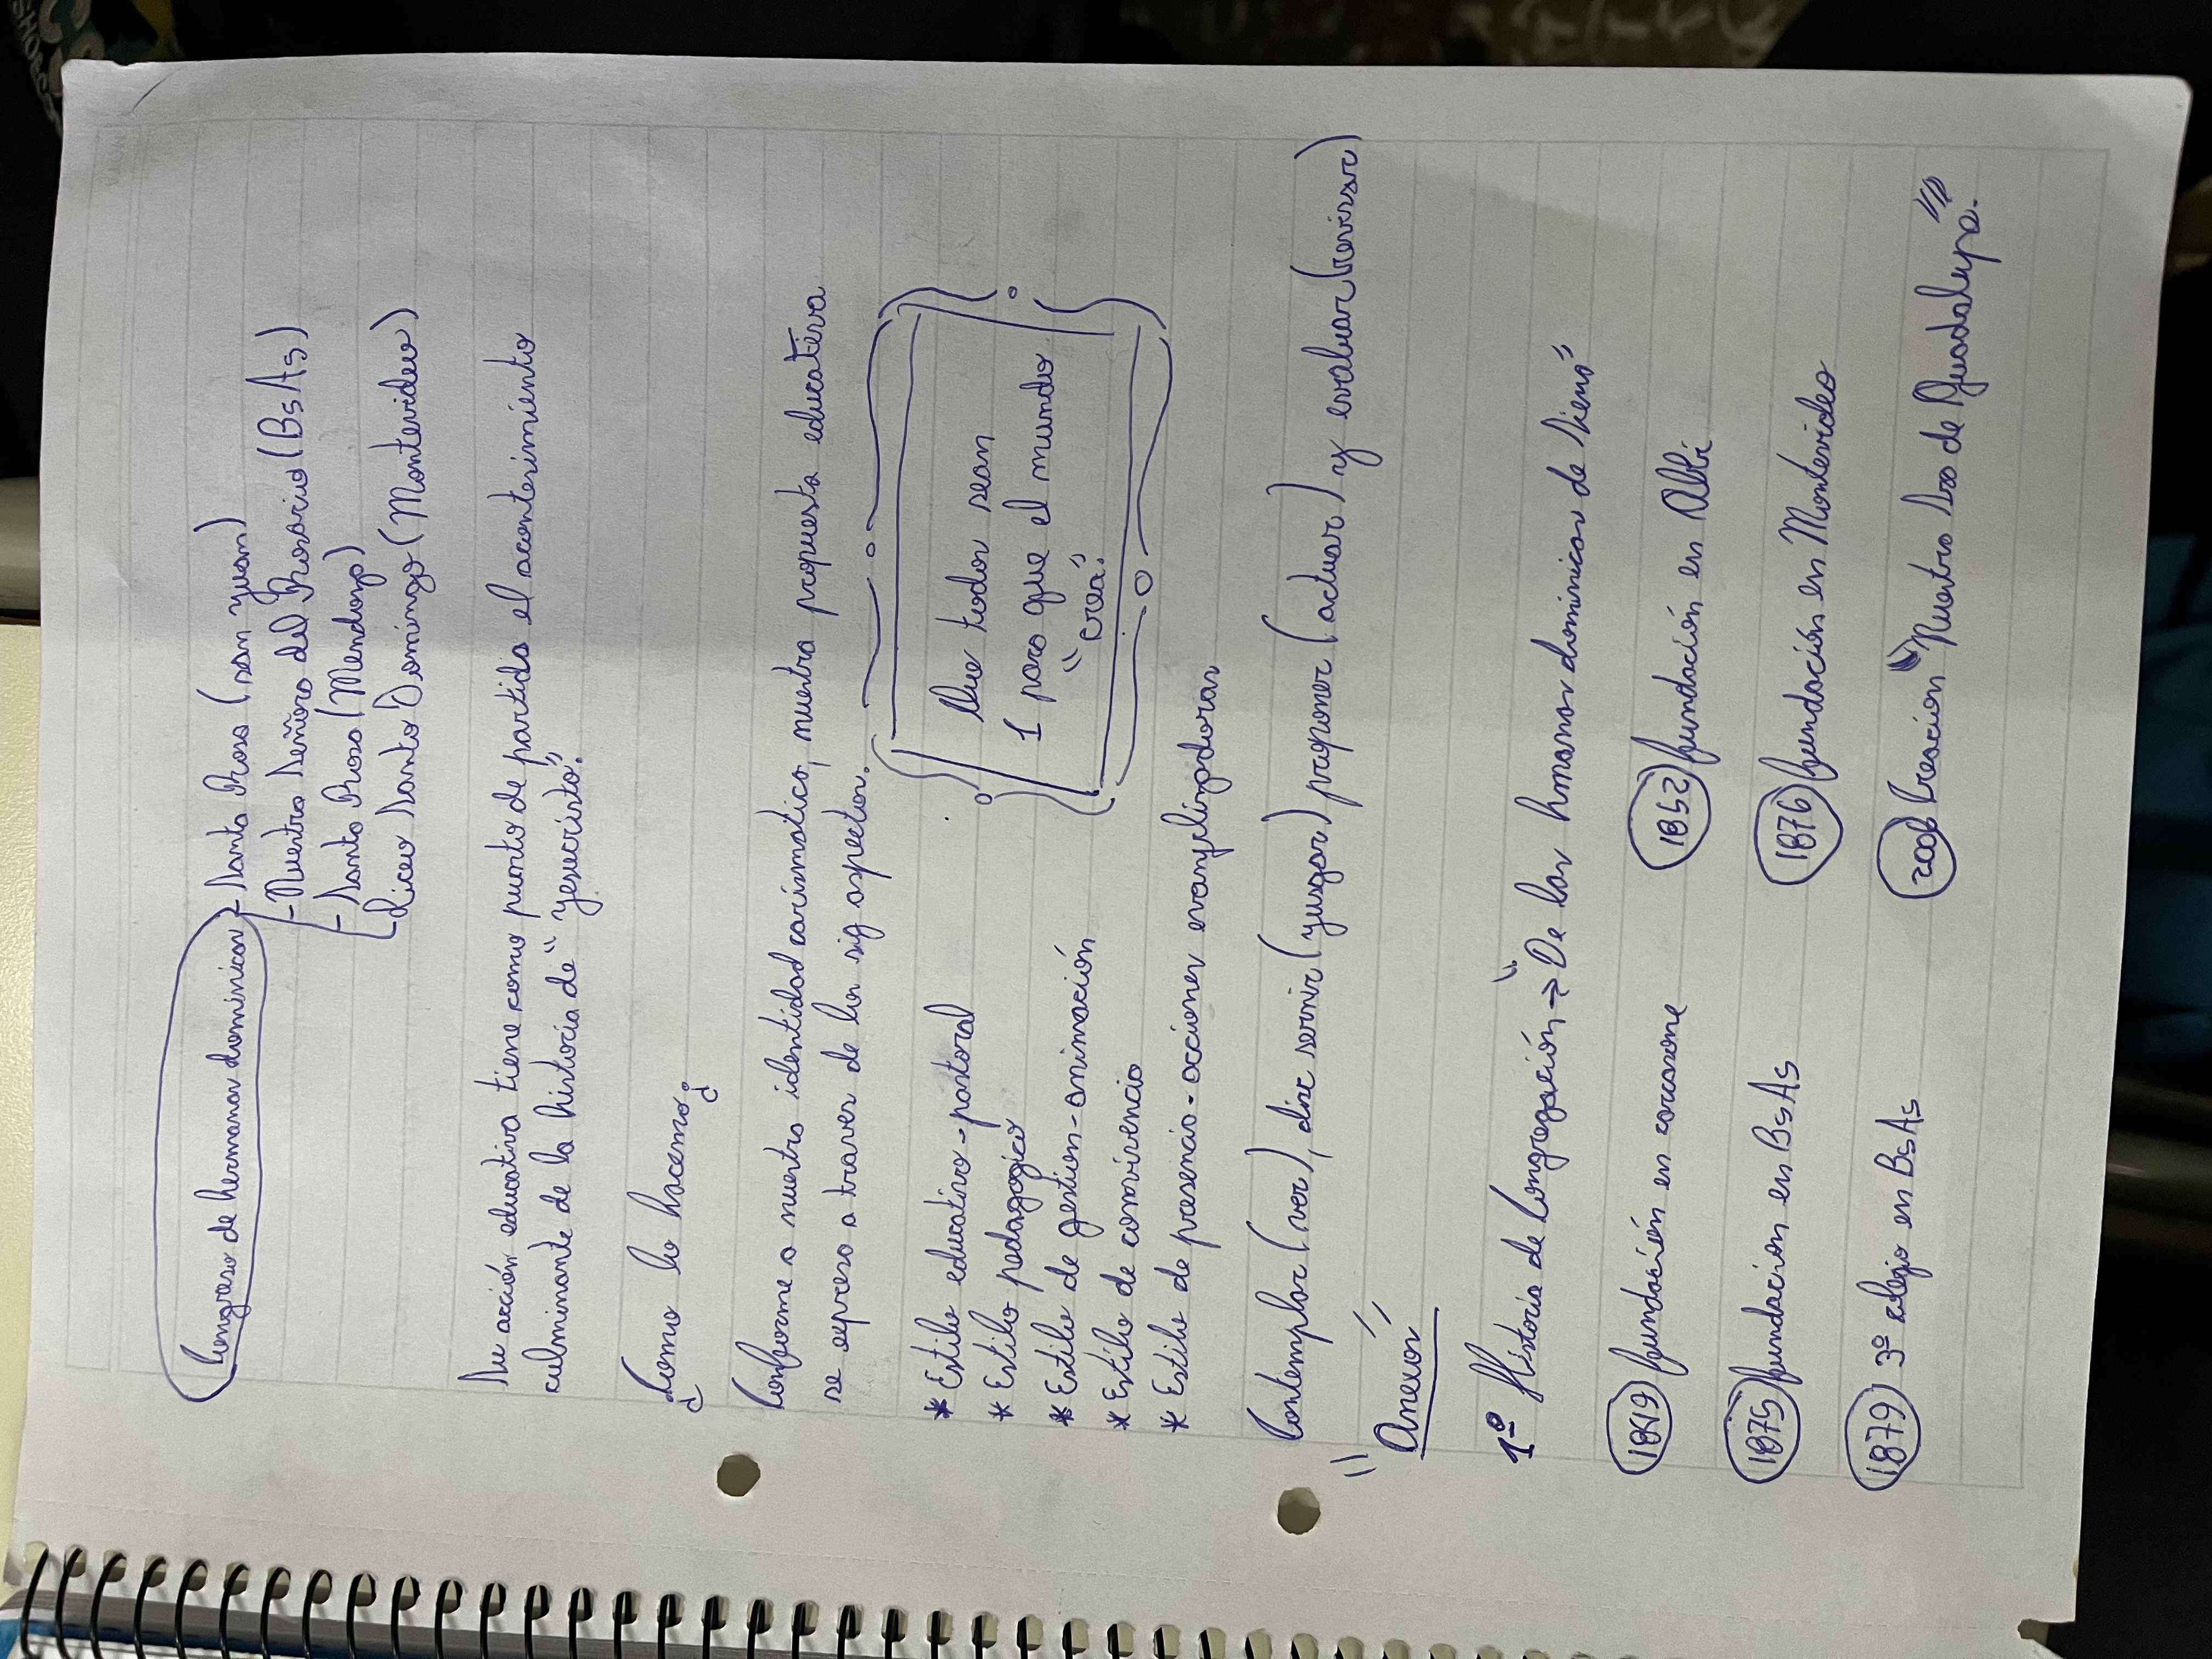 Congreso de hermanas dominicas - Santa Rosa (san yuan)
- Nuestra Señora del Rosario (Bs As)
- Santa Rosa (Mendoza)
- Liceo Santo Domingo (Montevideo)
Su acción educativa tiene como punto de partida el acontesimiento
culminante de la historia de "yesucristo".
¿Como lo hacemos?
Conforme a nuestra identidad carismatica, nuestra propuesta educativa
se expresa a traves de los sig aspectos.
Que todos sean
1 para que el mundo
"crea".
* Estilo educativo - pastoral
* Estilo pedagogico
* Estilo de gestion - animación
* Estilo de convivencia
* Estilo de presencia - acciones evangelizadoras
Contemplar (ver), discernir (yusgar) proponer (actuar) y evaluar (revisar)
"Anexos"
1º Historia de Congregación → "De las hmanas dominicas de Siena"
1849 fundación en carcasone
1852 fundación en Albi
1875 fundacion en Bs As
1876 fundación en Montevideo
1879 3º colegio en Bs As
2006 Creacion "Nuestra Sra de Guadalupa".